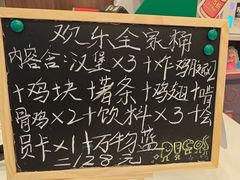 欢乐全家桶
内容含:汉堡×3+炸鸡腿
+鸡块+薯条+鸡翅+啃
骨鸡×2+饮料×3+会
员卡×1+万物篮
=128元